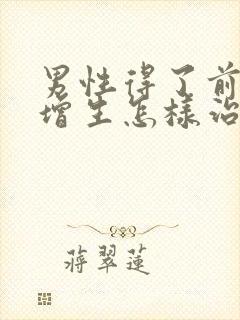 男性得了前
增生怎樣治
蔣翠蓮